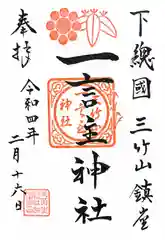 下總國 三竹山鎮座
一言主神社
奉拝
令和四年
二月十六日